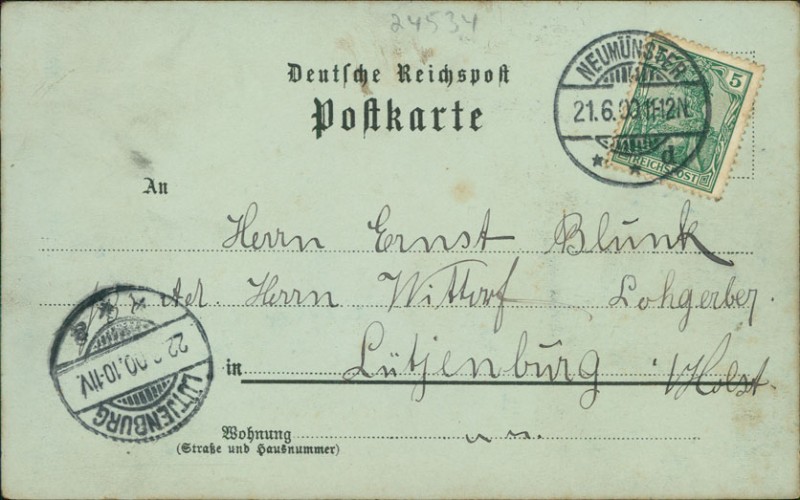 24534
Deutsche Reichspost
Postkarte
NEUMÜNSTER
21.6.00 11-12N.
d
5
REICHSPOST
An
Herrn Ernst Blunk
Adr. Herrn Wittorf Lohgerber.
in Lütjenburg i/Holst.
Wohnung
(Straße und Hausnummer)
LÜTJENBURG
22.6.00.10-11V.